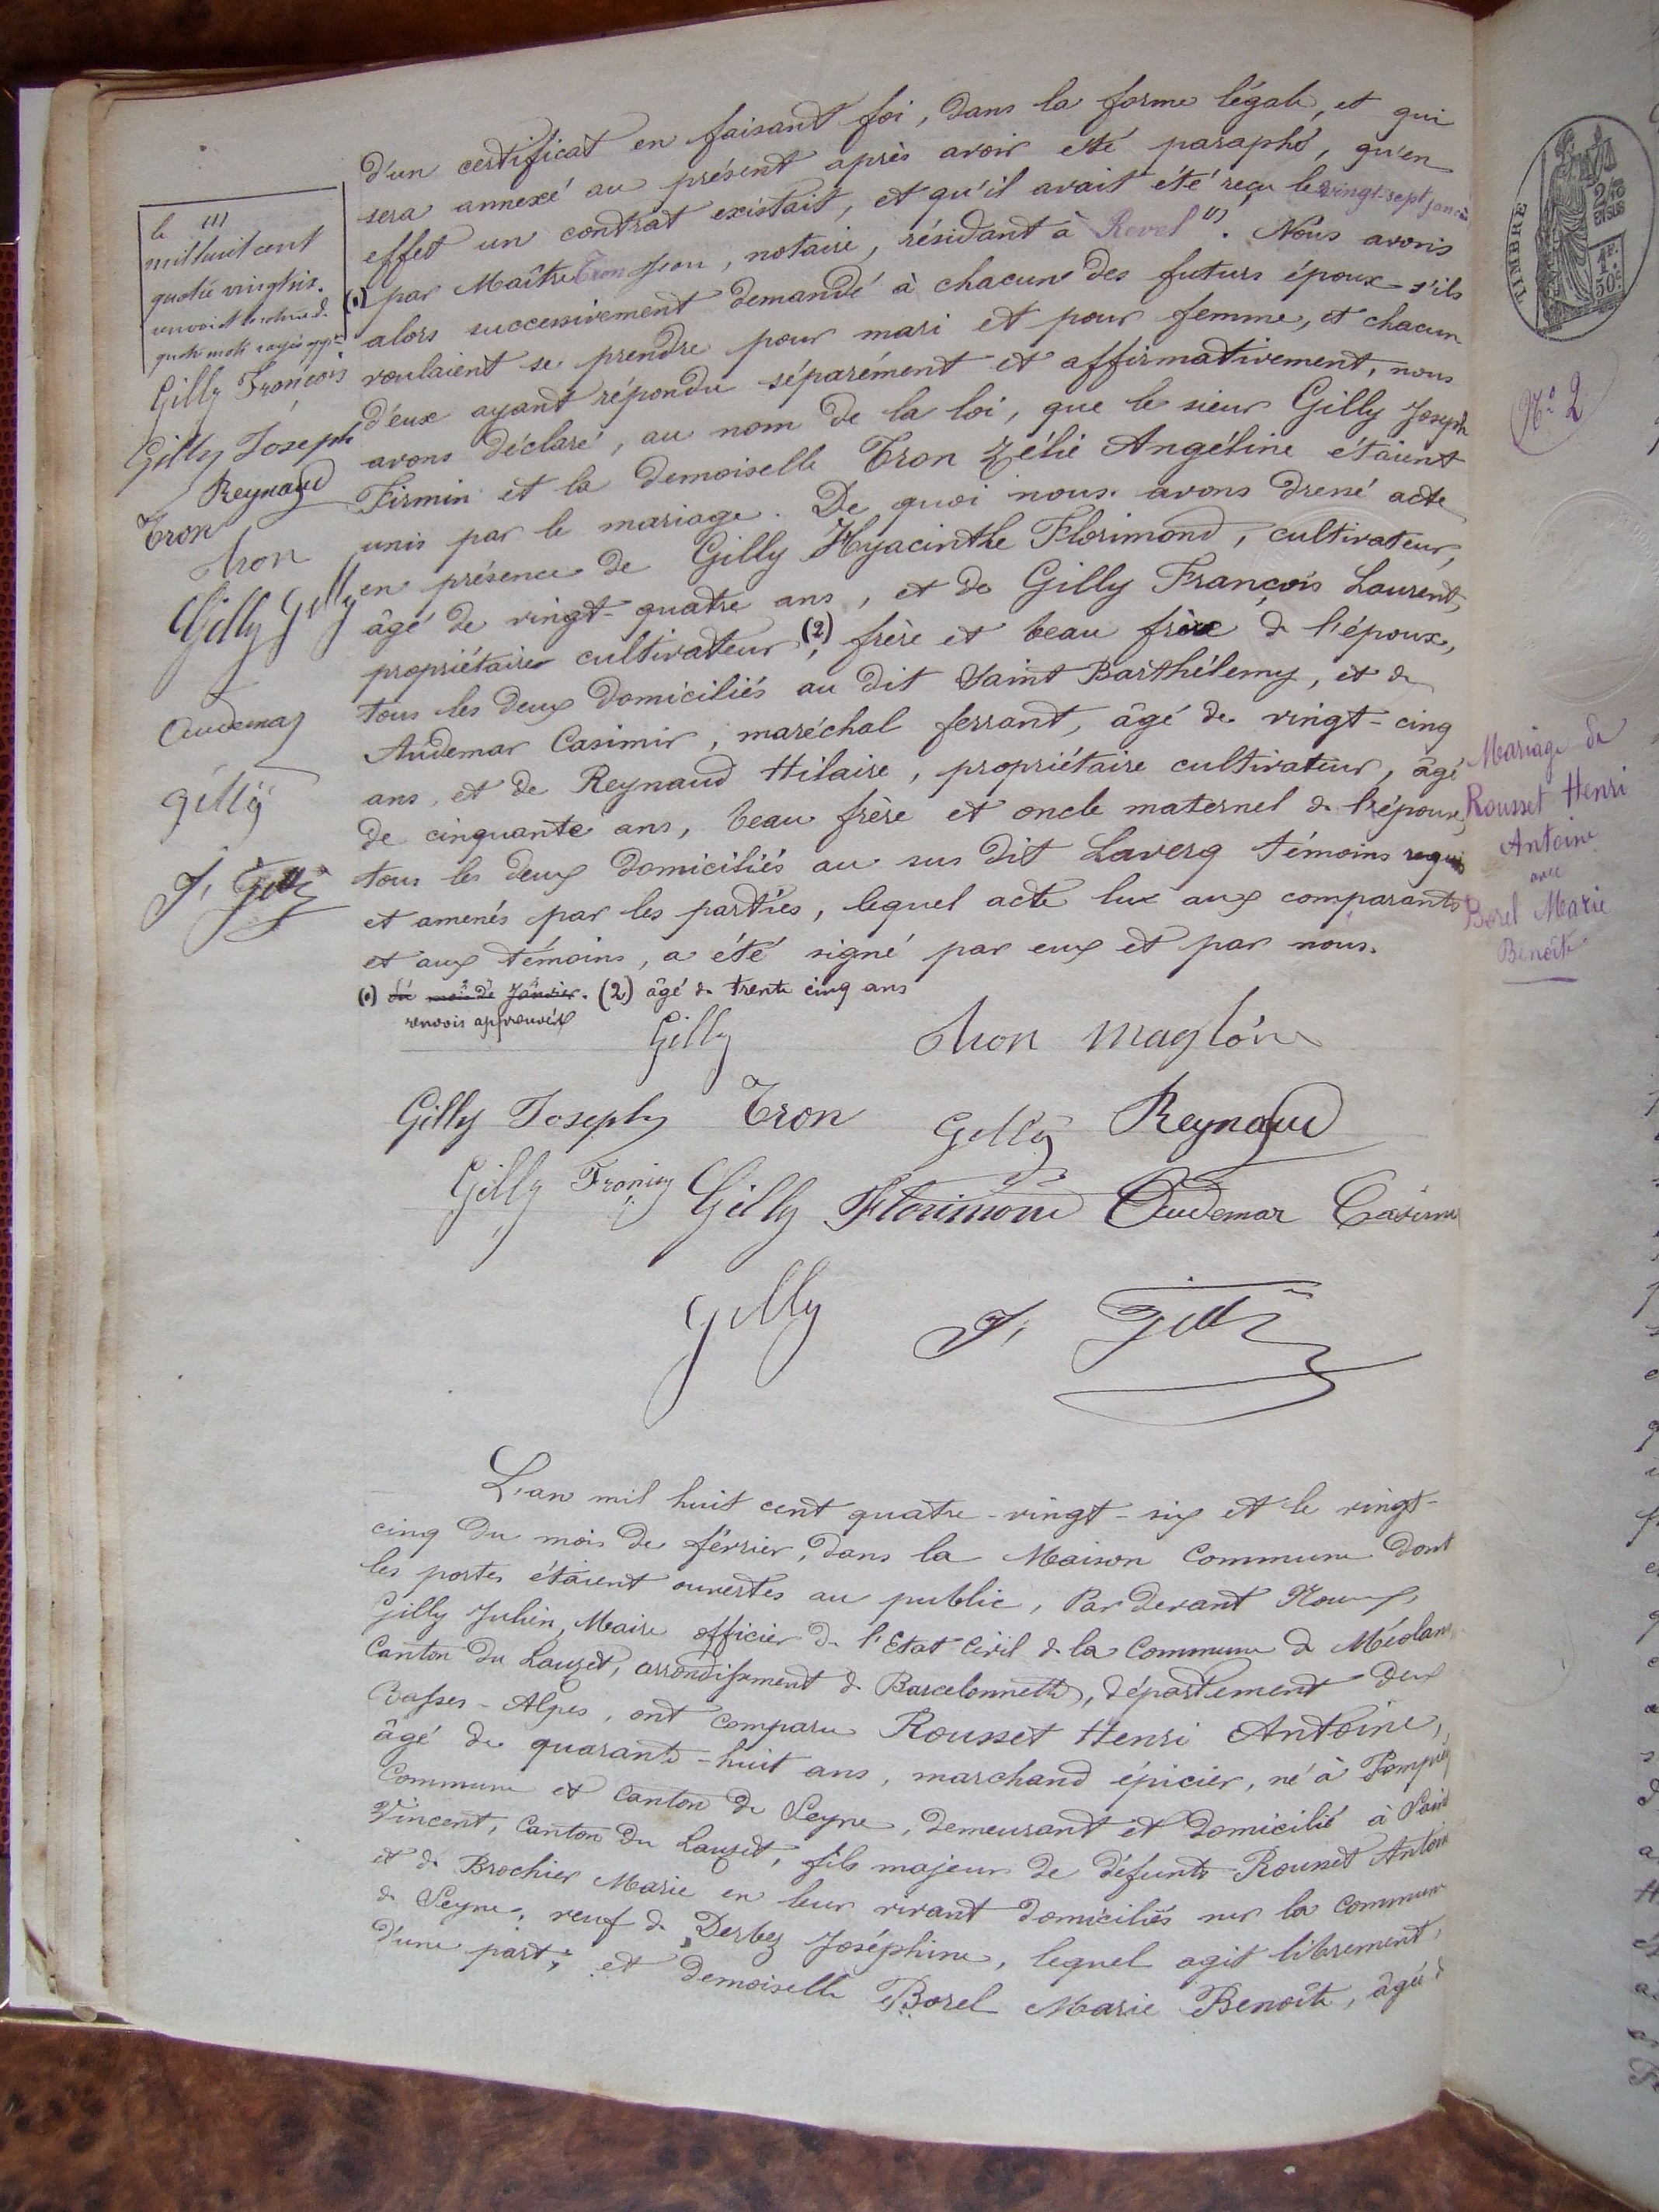 d'un certificat en faisant foi, dans la forme légale, et qui
sera annexé au présent après avoir été paraphé, qu'en
effet un contrat existait, et qu'il avait été reçu le vingt-sept janvier
(1) par Maître Tron Jean, notaire, résidant à Revel (1). Nous avons
alors successivement demandé à chacun des futurs époux s'ils
voulaient se prendre pour mari et pour femme, et chacun
d'eux ayant répondu séparément et affirmativement, nous
avons déclaré, au nom de la loi, que le sieur Gilly Joseph
Firmin et la demoiselle Tron Zélie Angéline étaient
unis par le mariage. De quoi nous avons dressé acte
en présence de Gilly Hyacinthe Florimond, cultivateur,
âgé de vingt-quatre ans, et de Gilly François Laurent,
propriétaire cultivateur (2), frère et beau frère de l'époux,
tous les deux domiciliés au dit Saint Barthélemy, et de
Audemar Casimir, maréchal ferrant, âgé de vingt-cinq
ans, et de Reynaud Hilaire, propriétaire cultivateur, âgé
de cinquante ans, beau frère et oncle maternel de l'épouse,
tous les deux domiciliés au sus dit Laverq témoins requis
et amenés par les parties, lequel acte lu aux comparants
et aux témoins, a été signé par eux et par nous.
(1) du mois de Janvier. (2) âgé de trente cinq ans
renvois approuvés
Gilly Tron Maglon
Gilly Joseph Tron Gilly Reynaud
Gilly François Gilly Florimond Audemar Casimir
Gilly J. Gilly
(1)
le
mil huit cent
quatre vingt six.
Gilly François
Gilly Joseph
Reynaud
Tron
Tron
Gilly Gilly
Audemar
Gilly
J. Gilly
L'an mil huit cent quatre-vingt-six et le vingt-
cinq du mois de février, dans la Maison Commune dont
les portes étaient ouvertes au public, Par devant Nous,
Gilly Julien, Maire officier de l'Etat Civil de la Commune de Méolans
Canton du Lauzet, arrondissement de Barcelonnette, département des
Basses-Alpes, ont comparu Rousset Henri Antoine,
âgé de quarante-huit ans, marchand épicier, né à Pompiéry
Commune et Canton de Seyne, demeurant et domicilié à Saint
Vincent, Canton du Lauzet, fils majeur de défunts Rousset Antoine
et de Brochier Marie en leur vivant domiciliés sur la commune
de Seyne, veuf de Derbez Joséphine, lequel agit librement,
d'une part; et demoiselle Borel Marie Benoîte, âgée d
TIMBRE
2/10
EN SUS
1F.
50C.
N° 2
Mariage de
Rousset Henri
Antoine
avec
Borel Marie
Benoîte